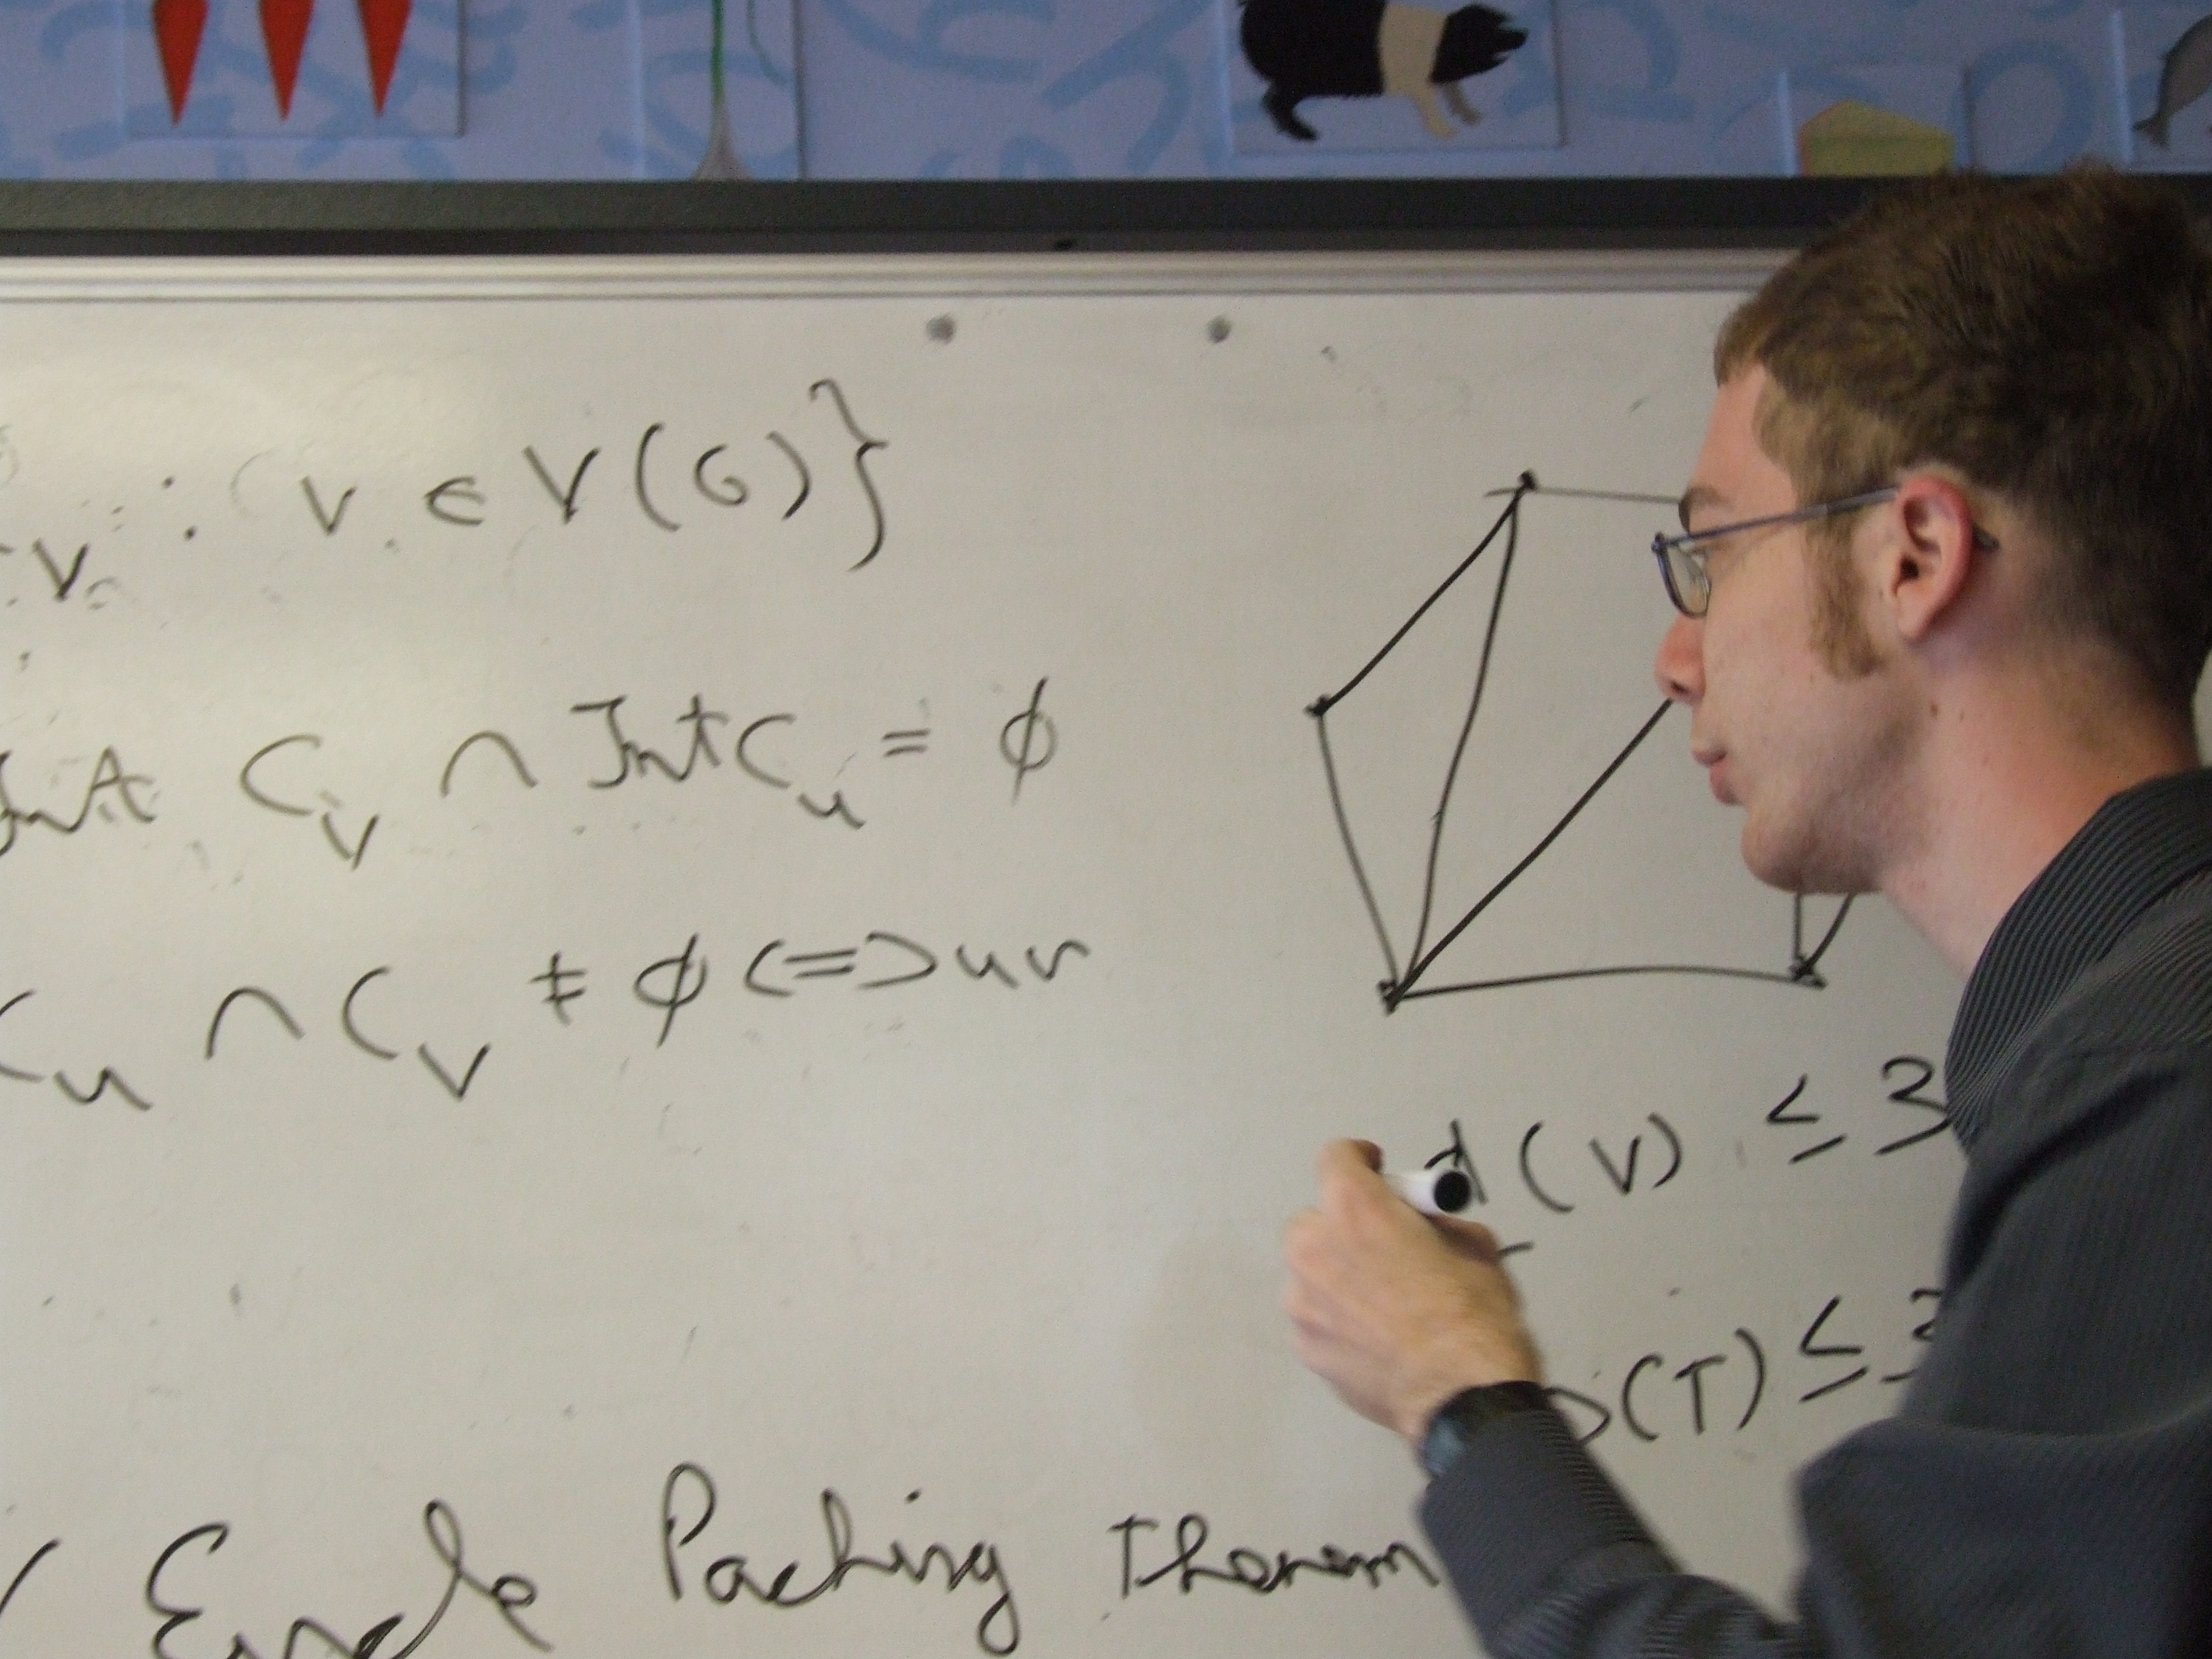 C_v : v ∈ V(G)}
Int C_v ∩ Int C_u = ∅
C_u ∩ C_v ≠ ∅ <=> uv
d(v) ≤ 3
(T) ≤
( Circle Packing Theorem